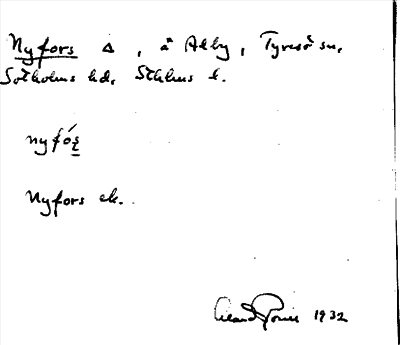 Nyfors Δ, å Alby, Tyresö sn,
Sotholms hd, Sthlms l.
nyfó
Nyfors ek.
1932